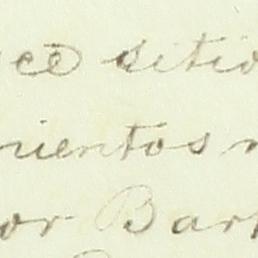 ce sitio
rientos
or Bar